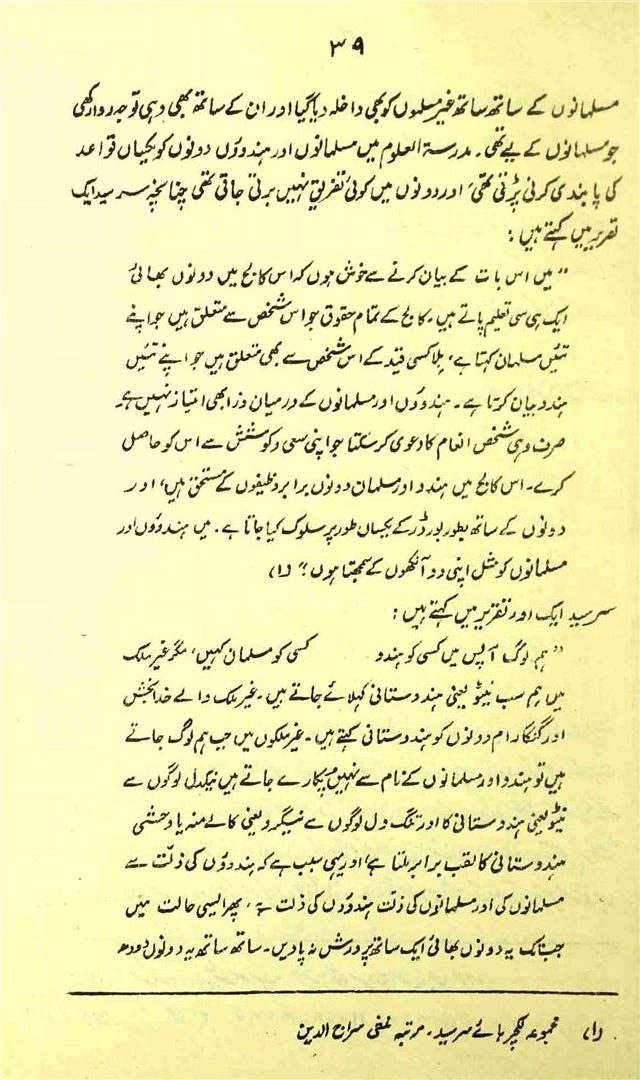 ۳۹
مسلمانوں کے ساتھ ساتھ غیر مسلموں کو بھی داخلہ دیا گیا اور ان کے ساتھ بھی وہی توجہ روا رکھی
جو مسلمانوں کے لیے تھی۔ مدرسۃ العلوم میں مسلمانوں اور ہندوؤں دونوں کو یکساں قواعد
کی پابندی کرنی پڑتی تھی، اور دونوں میں کوئی تفریق نہیں برتی جاتی تھی چنانچہ سرسید ایک
تقریر میں کہتے ہیں:
" میں اس بات کے بیان کرنے سے خوش ہوں کہ اس کالج میں دونوں بھائی
ایک ہی سی تعلیم پاتے ہیں۔ کالج کے تمام حقوق جو اس شخص سے متعلق ہیں جو اپنے
تئیں مسلمان کہتا ہے، بلا کسی قید کے اس شخص سے بھی متعلق ہیں جو اپنے تئیں
ہندو بیان کرتا ہے۔ ہندوؤں اور مسلمانوں کے درمیان ذرا بھی امتیاز نہیں ہے۔
صرف وہی شخص انعام کا دعویٰ کر سکتا جو اپنی سعی و کوشش سے اس کو حاصل
کرے۔ اس کالج میں ہندو اور مسلمان دونوں برابر وظیفوں کے مستحق ہیں، اور
دونوں کے ساتھ بطور بورڈر کے یکساں طور پر سلوک کیا جاتا ہے۔ میں ہندوؤں اور
مسلمانوں کو مثل اپنی دو آنکھوں کے سمجھتا ہوں؛" (۱)
سرسید ایک اور تقریر میں کہتے ہیں:
" ہم لوگ آپس میں کسی کو ہندو کسی کو مسلمان کہیں، مگر غیر ملک
میں ہم سب نیٹو یعنی ہندوستانی کہلائے جاتے ہیں۔ غیر ملک والے خدا بخش
اور گنگا رام دونوں کو ہندوستانی کہتے ہیں۔ غیر ملکوں میں جب ہم لوگ جاتے
ہیں تو ہندو اور مسلمانوں کے نام سے نہیں پکارے جاتے ہیں نیکدل لوگوں سے
نیٹو یعنی ہندوستانی کا اور تنگ دل لوگوں سے نیگرو یعنی کالے منہ یا وحشی
ہندوستانی کا لقب برابر ملتا ہے، اور یہی سبب ہے کہ ہندوؤں کی ذلت سے
مسلمانوں کی اور مسلمانوں کی ذلت ہندوؤں کی ذلت ہے، پھر ایسی حالت میں
جب تک یہ دونوں بھائی ایک ساتھ پرورش نہ پاویں۔ ساتھ ساتھ یہ دونوں دودھ
(۱) مجموعہ لکچر ہائے سرسید۔ مرتبہ منشی سراج الدین